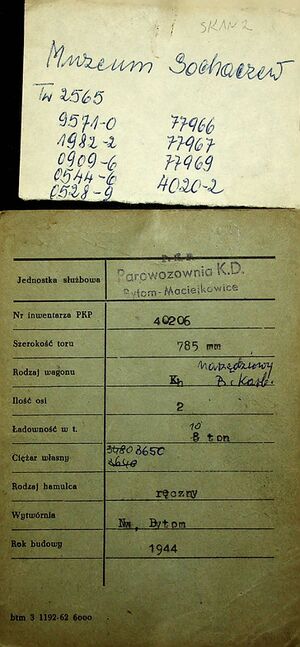 SKAN 2
Muzeum Sochaczew
Tw 2565
9571-0 77966
1982-2 77967
0909-6 77969
0544-6 4020-2
0528-9
P.K.P.
Jednostka służbowa Parowozownia K.D.
Bytom-Maciejkowice
Nr inwentarza PKP 40206
Szerokość toru 785 mm
Rodzaj wagonu Kh narzędziowy
Ilość osi 2
Ładowność w t. 10
8 ton
Ciężar własny 3480 3650
3640
Rodzaj hamulca ręczny
Wytwórnia Nw, Bytom
Rok budowy 1944
btm 3 1192-62 6000